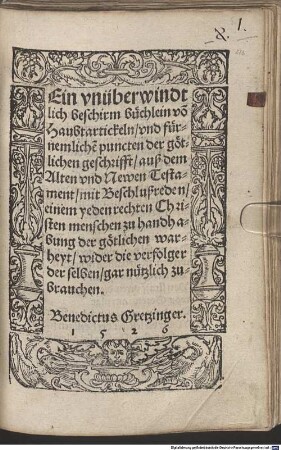 1.
Ein vnüberwindt
lich beschirm büchlein võ
Haubtartickeln/vnd für-
nemlichẽ puncten der göt-
lichen geschrifft/auß dem
Alten vnd Newen Testa-
ment/mit Beschlußreden/
einem yeden rechten Chri-
sten menschen zu handha-
bung der götlichen war-
heyt/wider die verfolger
der selben/gar nützlich zu-
brauchen.
Benedictus Gretzinger.
1526